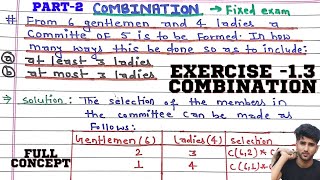 PART-2 COMBINATION → Fixed exam
# From 6 gentlemen and 4 ladies a
Committe OF 5 is to be formed. In how
many ways this be done so as to include:
(a) at least 3 ladies
(b) at most 2 ladies
EXERCISE -1.3
COMBINATION
→ Solution: The selection of the members in
the committee can be made as
Follows:
Gentlemen (6) Ladies (4) selection
2 3 C(6,2)*C
1 4 C(6,1)*
FULL
CONCEPT